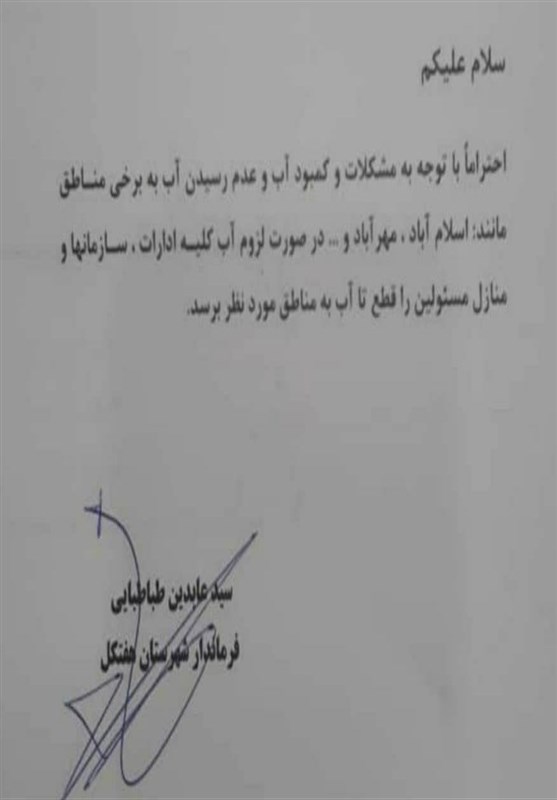 سلام علیکم
احتراماً با توجه به مشکلات و کمبود آب و عدم رسیدن آب به برخی مناطق
مانند: اسلام آباد ، مهرآباد و ... در صورت لزوم آب کلیه ادارات ، سازمانها و
منازل مسئولین را قطع تا آب به مناطق مورد نظر برسد.
سید عابدین طباطبایی
فرماندار شهرستان هفتکل